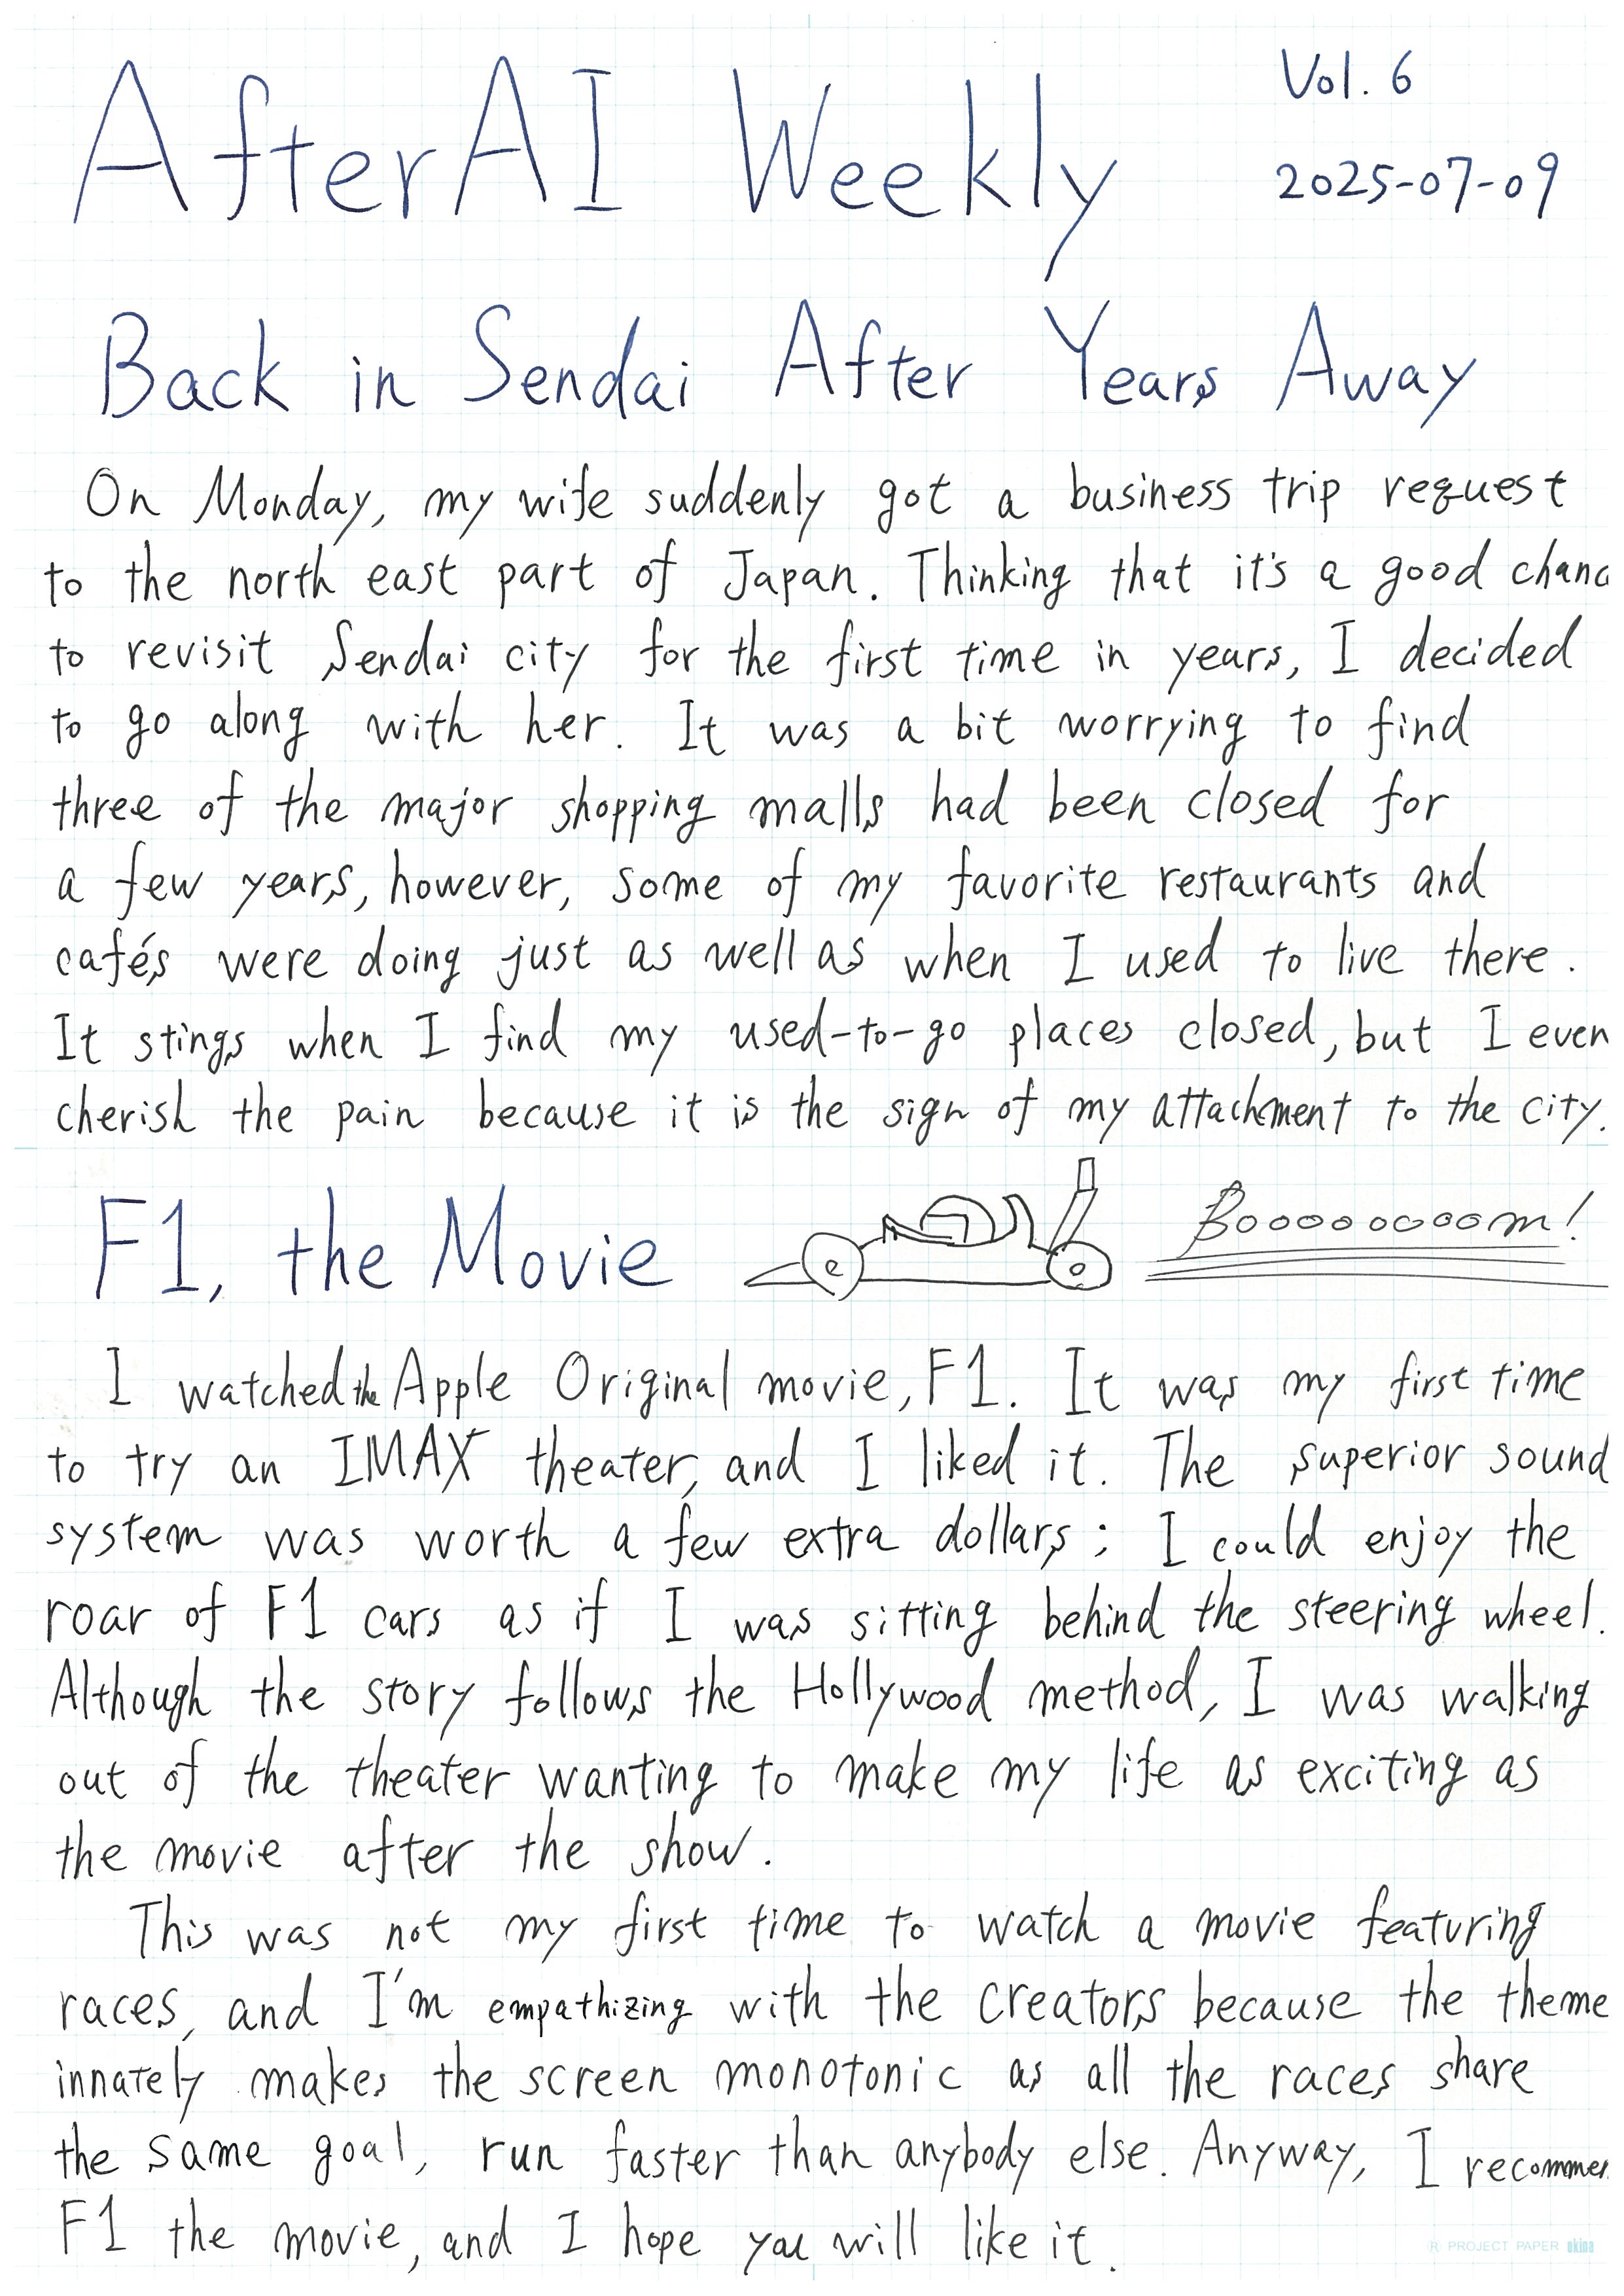 AfterAI Weekly
Vol. 6
2025-07-09
Back in Sendai After Years Away
On Monday, my wife suddenly got a business trip request
to the north east part of Japan. Thinking that it's a good chanc
to revisit Sendai city for the first time in years, I decided
to go along with her. It was a bit worrying to find
three of the major shopping malls had been closed for
a few years, however, some of my favorite restaurants and
cafés were doing just as well as when I used to live there.
It stings when I find my used-to-go places closed, but I even
cherish the pain because it is the sign of my attachment to the city.
F1, the Movie
Booooooooom!
I watched the Apple Original movie, F1. It was my first time
to try an IMAX theater, and I liked it. The superior sound
system was worth a few extra dollars; I could enjoy the
roar of F1 cars as if I was sitting behind the steering wheel.
Although the story follows the Hollywood method, I was walking
out of the theater wanting to make my life as exciting as
the movie after the show.
This was not my first time to watch a movie featuring
races, and I'm empathizing with the creators because the theme
innately makes the screen monotonic as all the races share
the same goal, run faster than anybody else. Anyway, I recommen
F1 the movie, and I hope you will like it.
R PROJECT PAPER okina